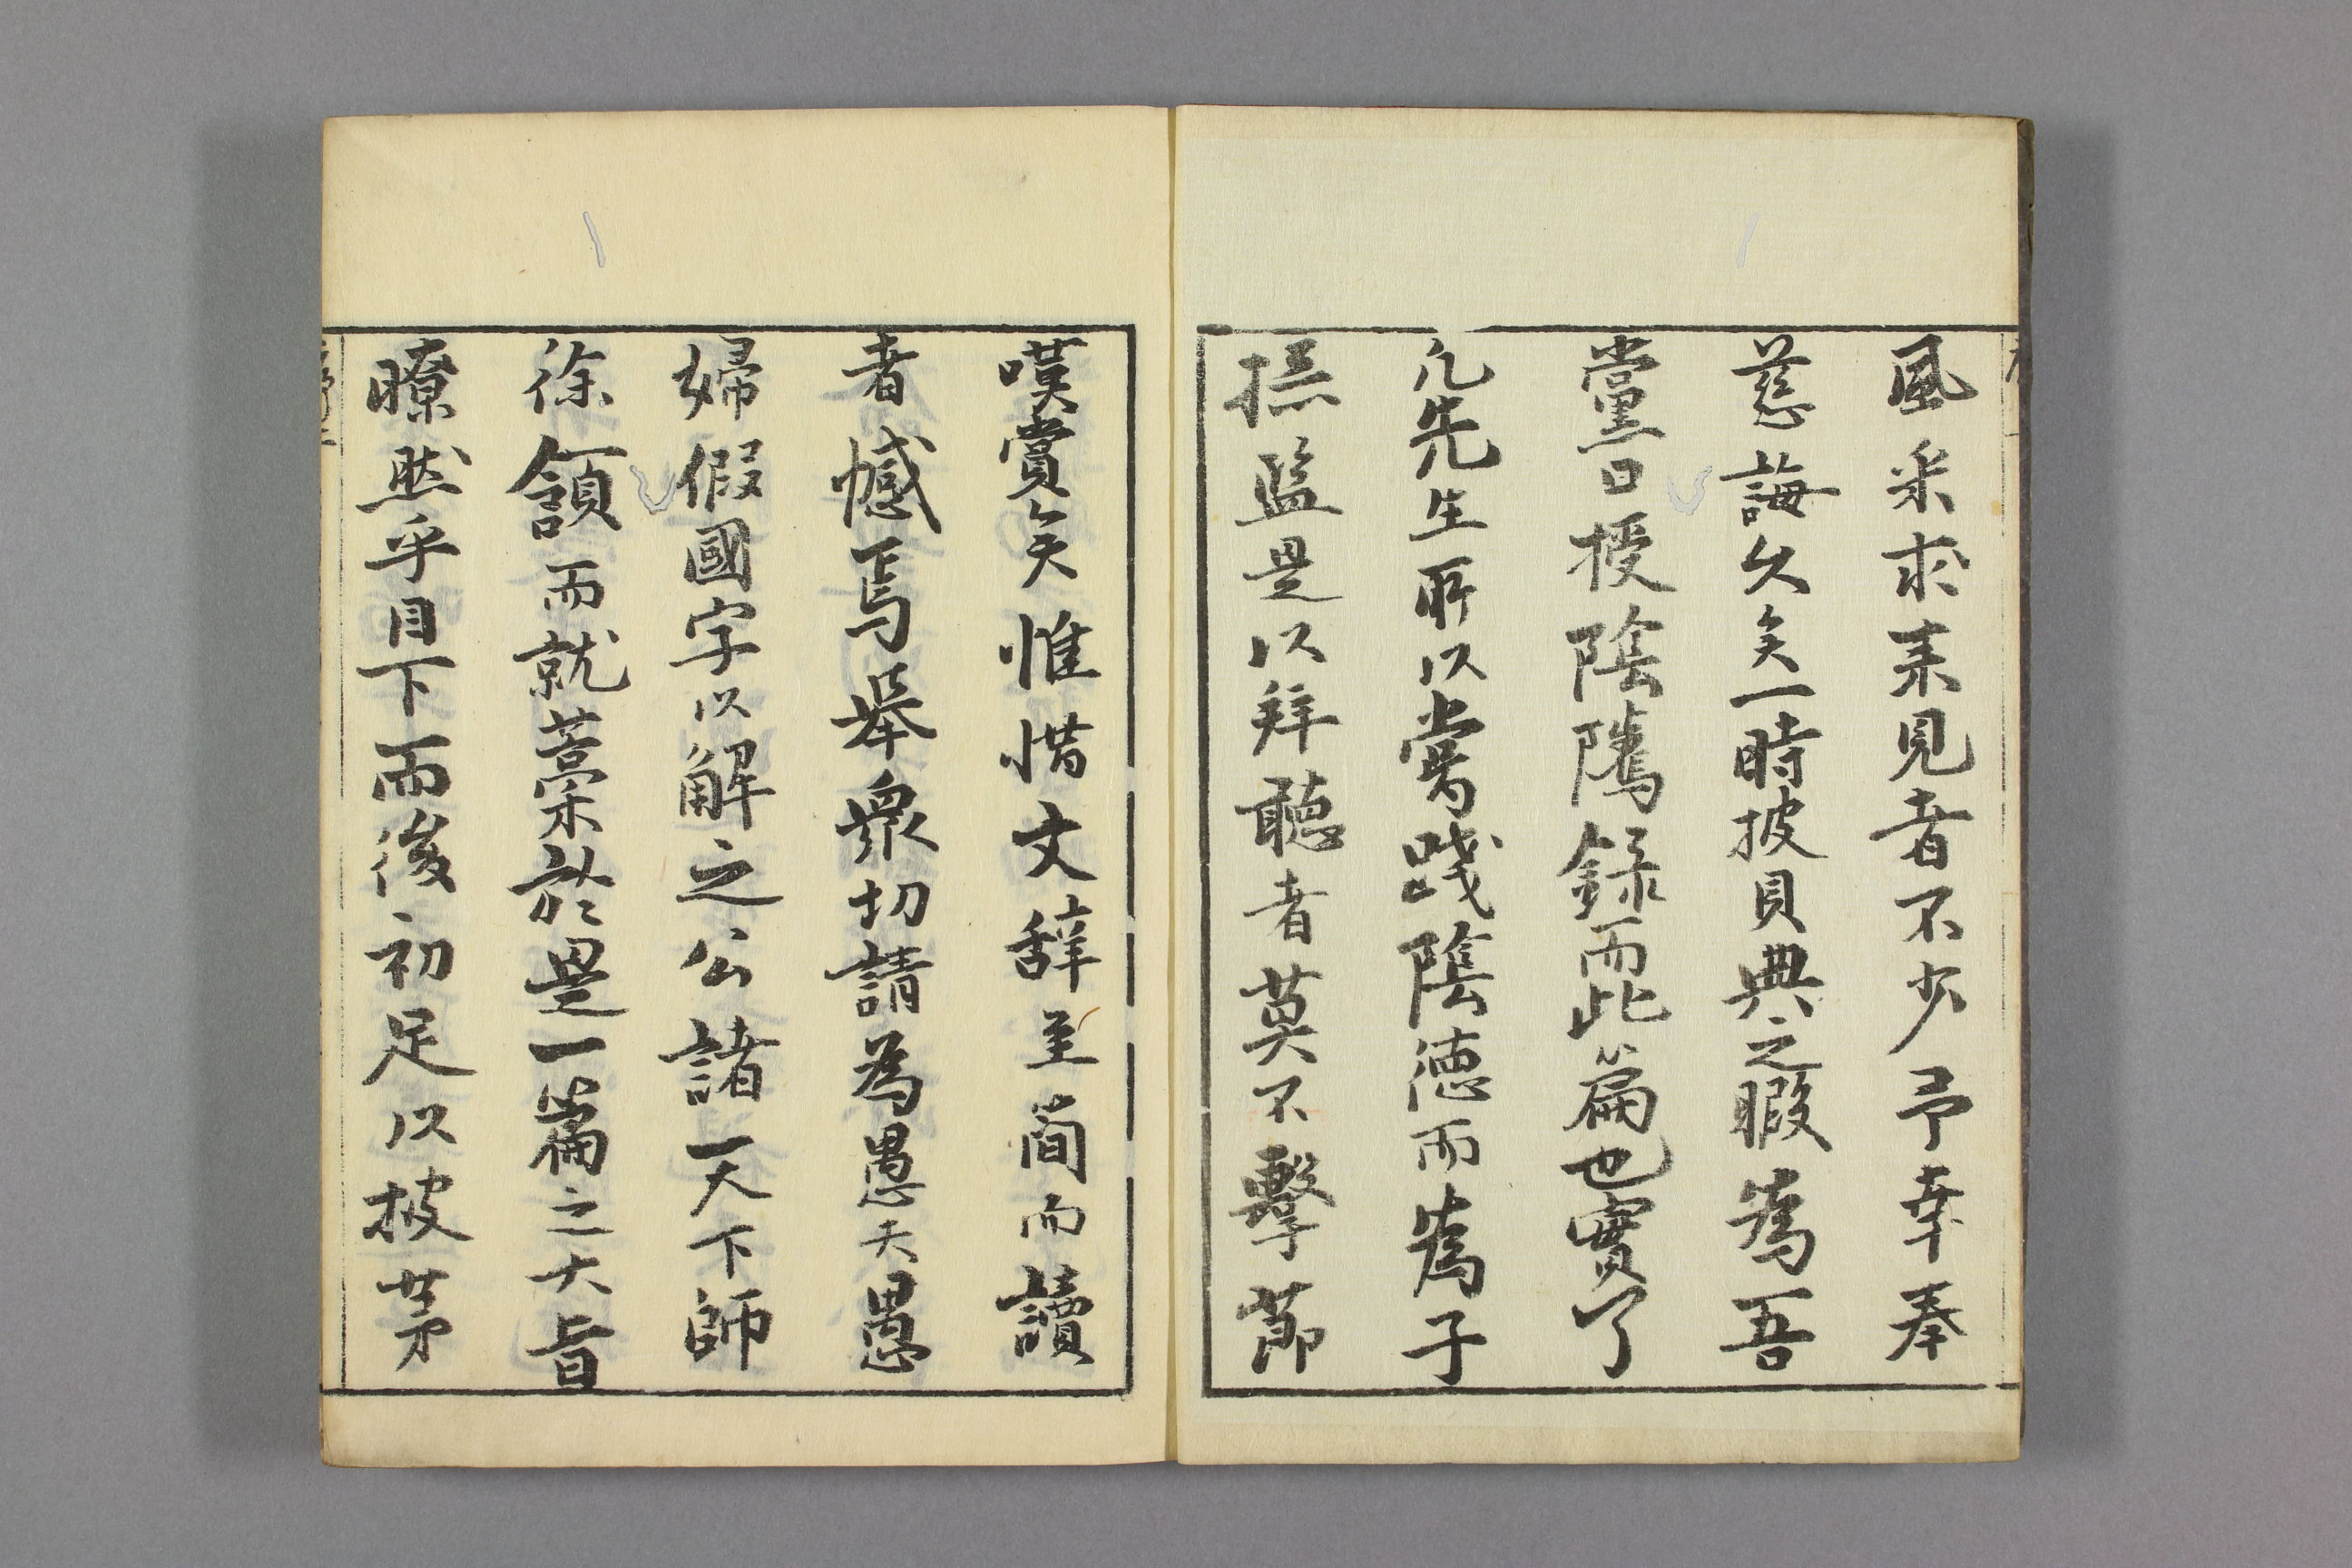 風采求来見者不少予幸奉
慈誨久矣一時披貝典之暇為吾
黨口授陰隲録而此篇也實了
凡先生所以嘗践陰徳而為子
孫監是以拜聽者莫不擊節
嘆賞矣惟惜文辞至簡而讀
者憾焉舉衆切請為愚夫愚
婦假國字以解之公諸天下師
徐領而就藁於是一篇之大旨
瞭然乎目下而後初足以披茅